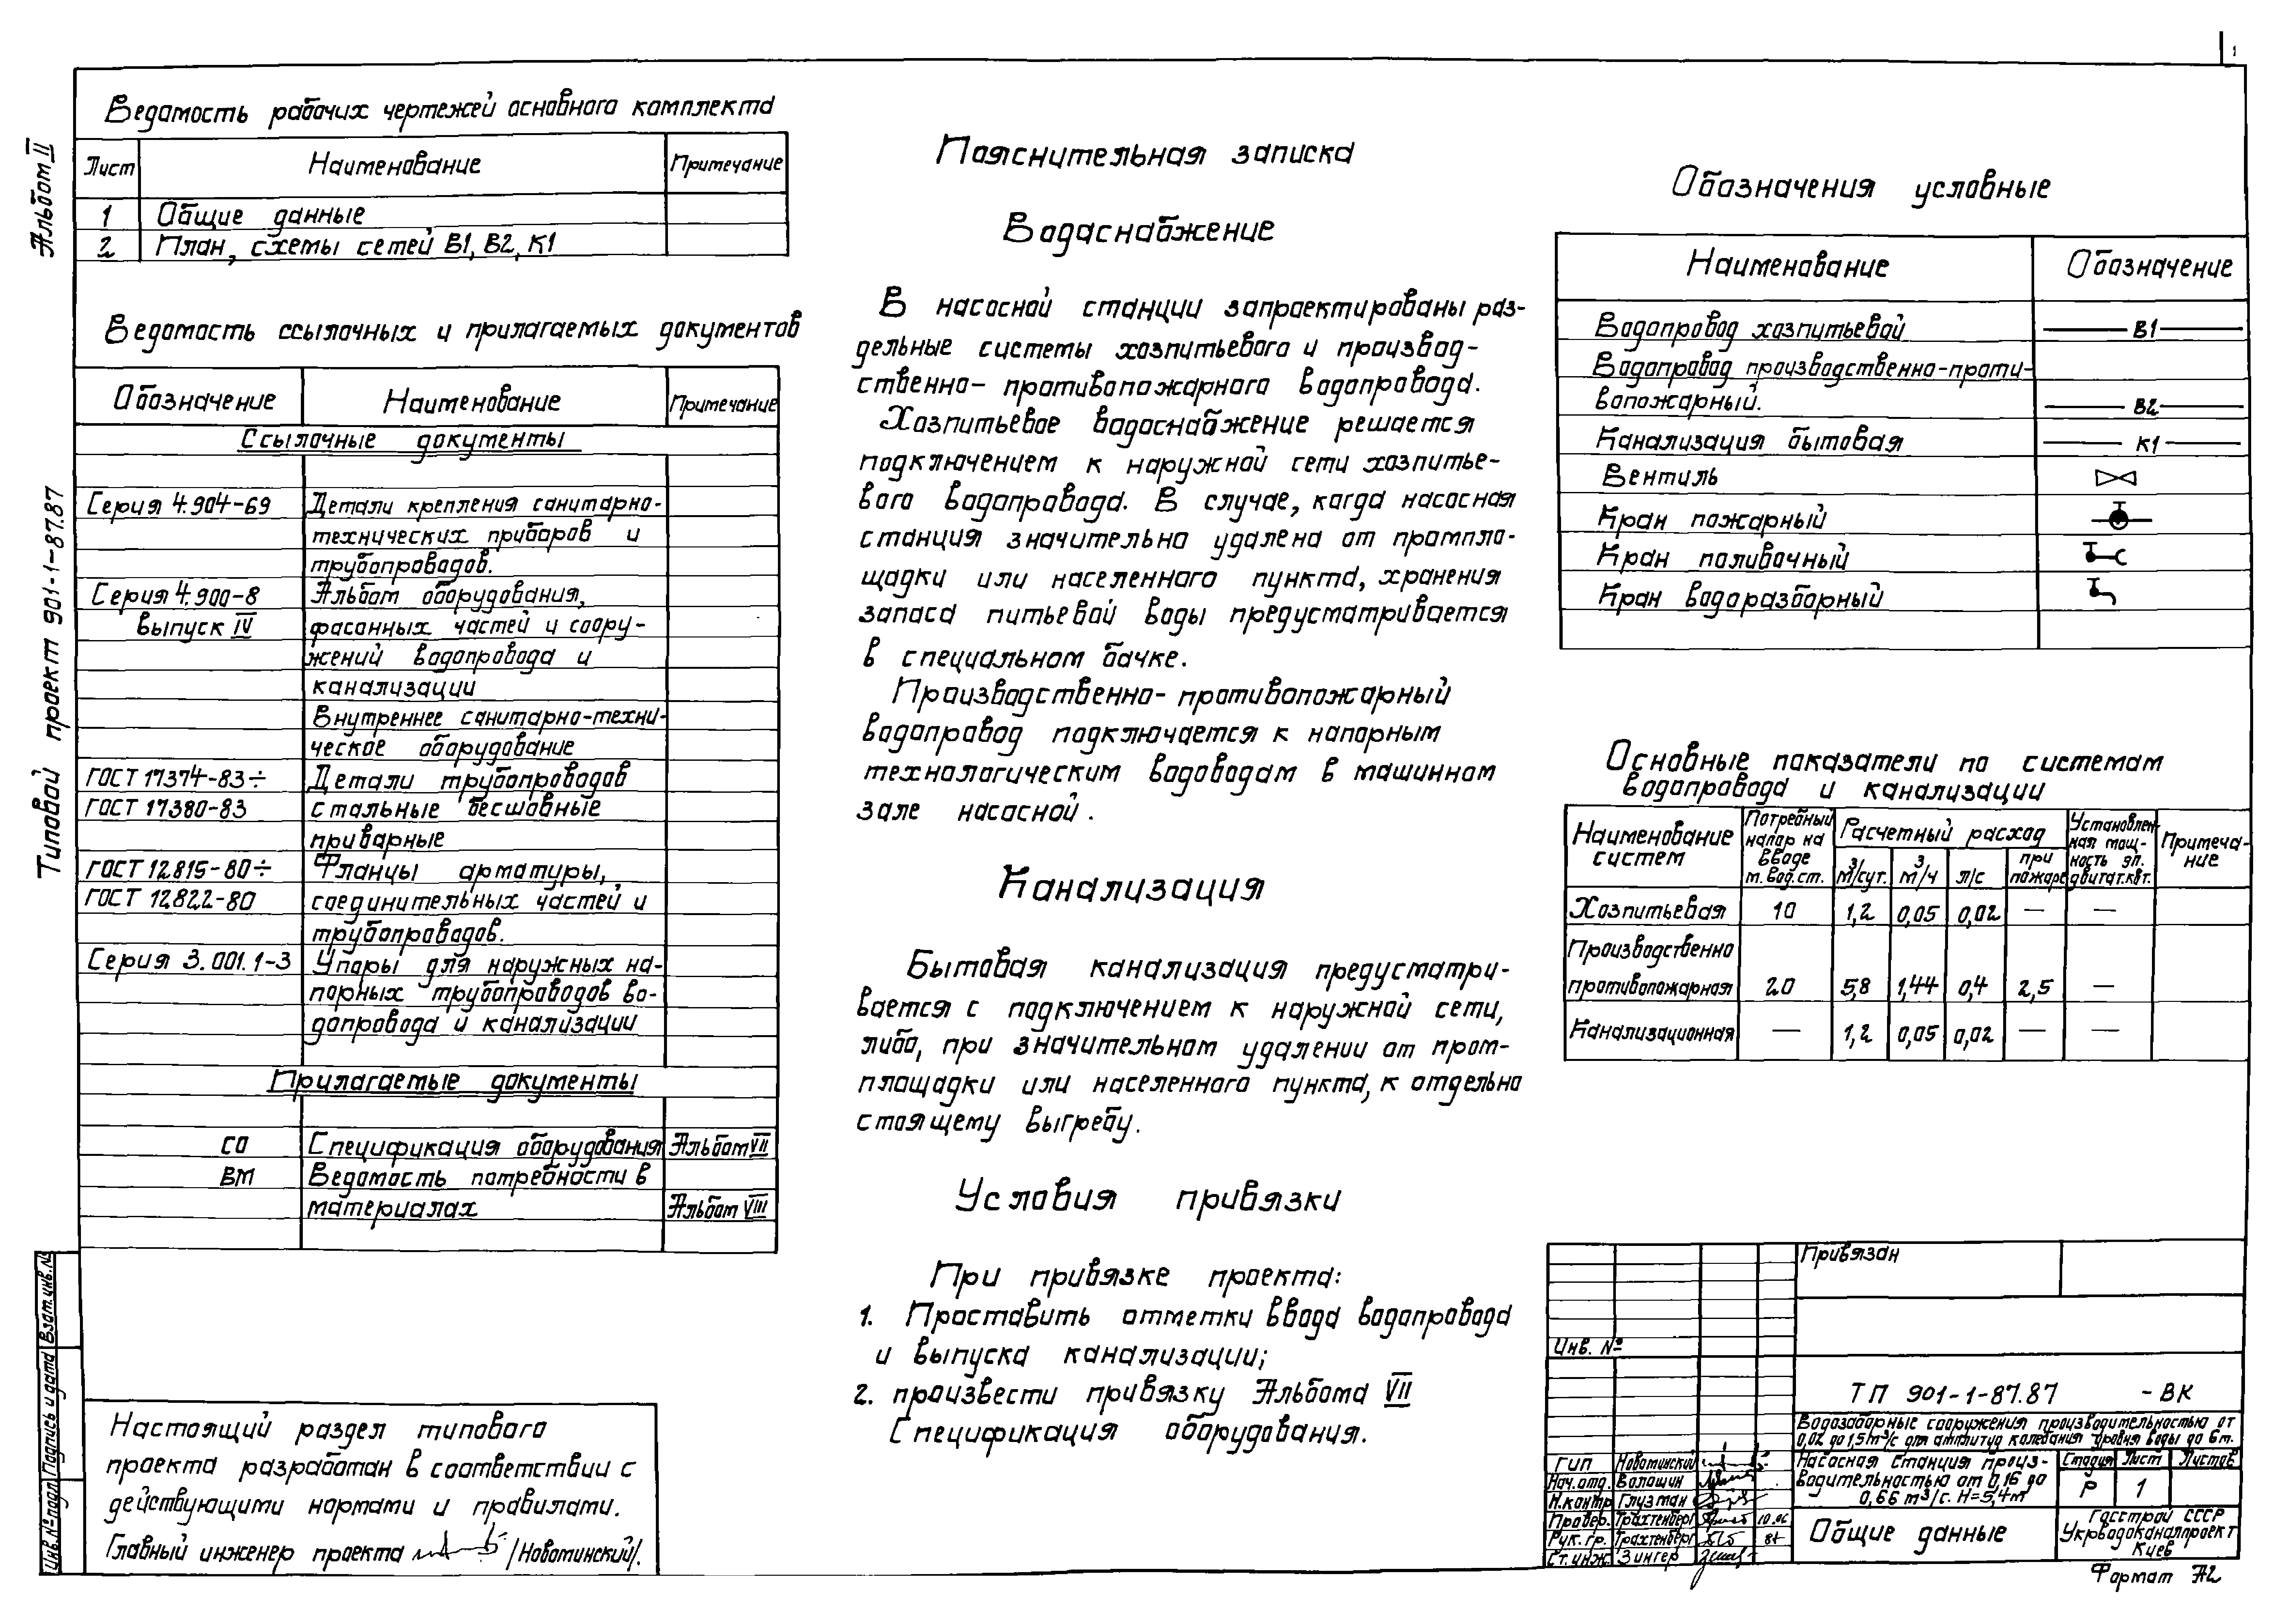 1
Альбом II
Типовой проект 901-1-87.87
Ведомость рабочих чертежей основного комплекта
Лист Наименование Примечание
1 Общие данные
2 План, схемы сетей В1, В2, К1
Ведомость ссылочных и прилагаемых документов
Обозначение Наименование Примечание
Ссылочные документы
Серия 4.904-69 Детали крепления санитарно-
технических приборов и
трубопроводов.
Серия 4.900-8 Альбом оборудования,
выпуск IV фасонных частей и соору-
жений водопровода и
канализации
Внутреннее санитарно-техни-
ческое оборудование
ГОСТ 17374-83÷ Детали трубопроводов
ГОСТ 17380-83 стальные бесшовные
приварные
ГОСТ 12815-80÷ Фланцы арматуры,
ГОСТ 12822-80 соединительных частей и
трубопроводов.
Серия 3.001.1-3 Упоры для наружных на-
порных трубопроводов во-
допровода и канализации
Прилагаемые документы
СО Спецификация оборудования Альбом VII
ВМ Ведомость потребности в
материалах Альбом VIII
Настоящий раздел типового
проекта разработан в соответствии с
действующими нормами и правилами.
Главный инженер проекта /Новоминский/.
Инв.№ подл. Подпись и дата Взам.инв.№
Пояснительная записка
Водоснабжение
В насосной станции запроектированы раз-
дельные системы хозпитьевого и производ-
ственно- противопожарного водопровода.
Хозпитьевое водоснабжение решается
подключением к наружной сети хозпитье-
вого водопровода. В случае, когда насосная
станция значительно удалена от промпло-
щадки или населенного пункта, хранения
запаса питьевой воды предусматривается
в специальном бачке.
Производственно- противопожарный
водопровод подключается к напорным
технологическим водоводам в машинном
зале насосной.
Канализация
Бытовая канализация предусматри-
вается с подключением к наружной сети,
либо, при значительном удалении от пром-
площадки или населенного пункта, к отдельно
стоящему выгребу.
Условия привязки
При привязке проекта:
1. Проставить отметки ввода водопровода
и выпуска канализации;
2. произвести привязку Альбома VII
Спецификация оборудования.
Обозначения условные
Наименование Обозначение
Водопровод хозпитьевой В1
Водопровод производственно-проти-
вопожарный. В2
Канализация бытовая К1
Вентиль
Кран пожарный
Кран поливочный
Кран водоразборный
Основные показатели по системам
водопровода и канализации
Наименование систем Потребный напор на вводе м.вод.ст. Расчетный расход Установлен-ная мощ-ность эл. двигат.кВт. Примеча-ние
м³/сут. м³/ч л/с при пожаре
Хозпитьевая 10 1,2 0,05 0,02 — —
Производственно
противопожарная 20 5,8 1,44 0,4 2,5 —
Канализационная — 1,2 0,05 0,02 — —
Привязан
Инв. №
ТП 901-1-87.87 -ВК
Водозаборные сооружения производительностью от
0,02 до 1,5м³/с для амплитуд колебания уровня воды до 6м.
ГИП Новоминский
Нач.отд. Волошин
Н.контр Глузман
Провер. Трахтенберг 10.86
Рук.гр. Трахтенберг
Ст.инж. Зингер
Насосная станция произ-
водительностью от 0,16 до
0,66 м³/с. Н=5,4м
Стадия Лист Листов
Р 1
Общие данные
Госстрой СССР
Укрводоканалпроект
Киев
Формат А2